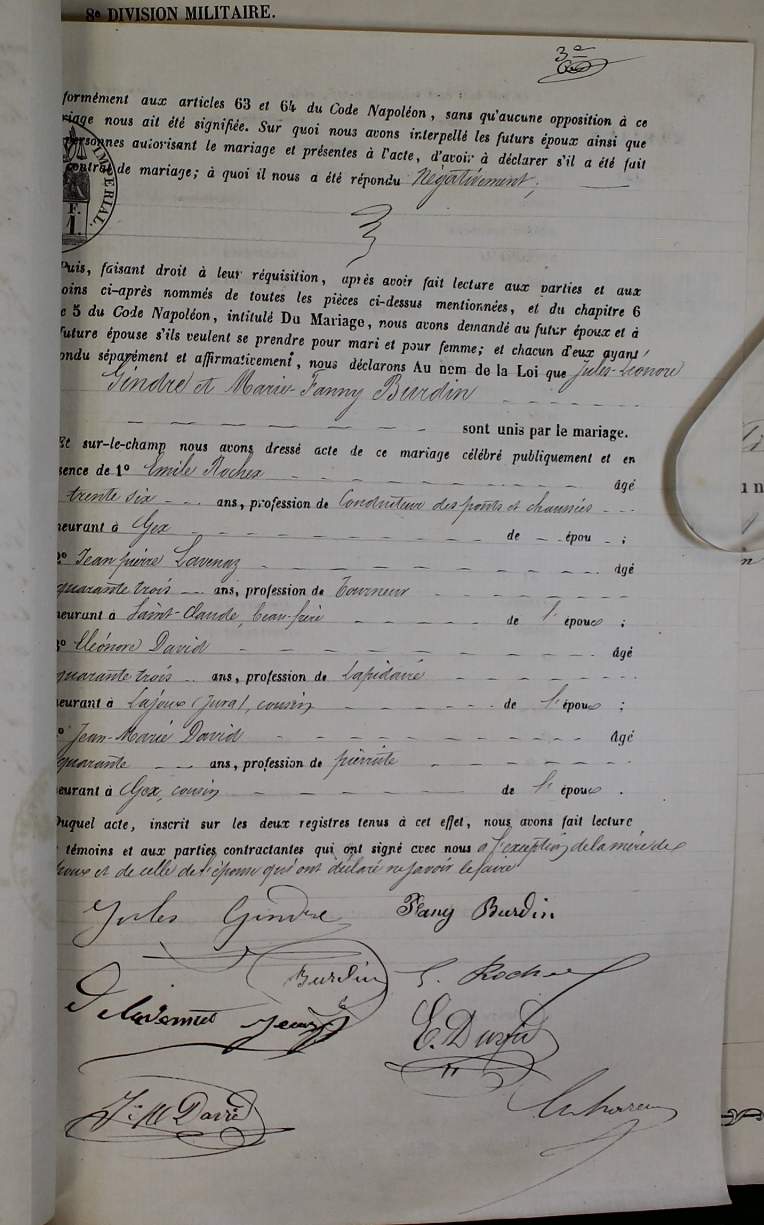 8e DIVISION MILITAIRE.
3e
formément aux articles 63 et 64 du Code Napoléon, sans qu'aucune opposition à ce
riage nous ait été signifiée. Sur quoi nous avons interpellé les futurs époux ainsi que
personnes autorisant le mariage et présentes à l'acte, d'avoir à déclarer s'il a été fait
contrat de mariage; à quoi il nous a été répondu Négativement;
IMPERIAL.
F.
1.
Puis, faisant droit à leur réquisition, après avoir fait lecture aux parties et aux
oins ci-après nommés de toutes les pièces ci-dessus mentionnées, et du chapitre 6
e 5 du Code Napoléon, intitulé Du Mariage, nous avons demandé au futur époux et à
future épouse s'ils veulent se prendre pour mari et pour femme; et chacun d'eux ayant
ondu séparément et affirmativement, nous déclarons Au nom de la Loi que Jules-Léonore
Gindre et Marie-Fanny Burdin
sont unis par le mariage.
Et sur-le-champ nous avons dressé acte de ce mariage célébré publiquement et en
sence de 1° Emile Rochex âgé
trente six ans, profession de Conducteur des ponts et chaussées
meurant à Gex de épou ;
2° Jean pierre Lavenaz âgé
quarante trois ans, profession de Tourneur
meurant à Saint-Claude, beau-frère de l' épouse ;
3° Eléonore David âgé
quarante trois ans, profession de Lapidaire
eurant à Lajoux (Jura), cousin de l' épouse ;
° Jean-Marie David âgé
quarante ans, profession de pierriste
eurant à Gex, cousin de l' épouse .
Duquel acte, inscrit sur les deux registres tenus à cet effet, nous avons fait lecture
témoins et aux parties contractantes qui ont signé avec nous à l'exception de la mère de
époux et de celle de l'épouse qui ont déclaré ne savoir le faire
Jules Gindre Fany Burdin
Burdin E. Roche
E. David
J. M David